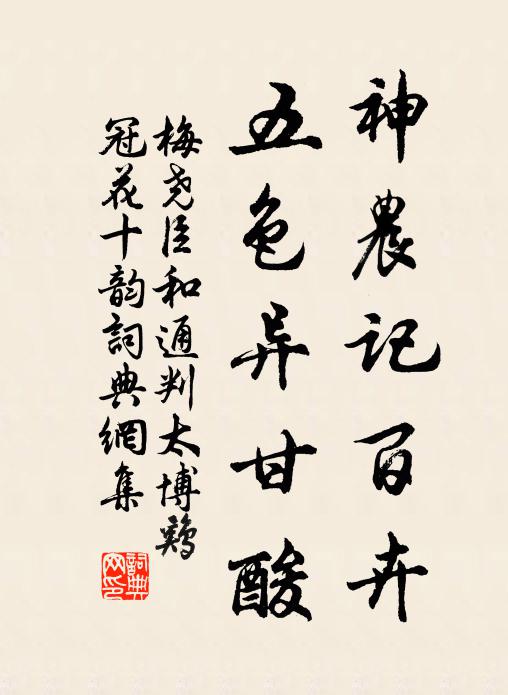 神農记百卉
五色异甘酸
梅尧臣和通判太博鷄
冠花十韵詞典網集
詞典網印